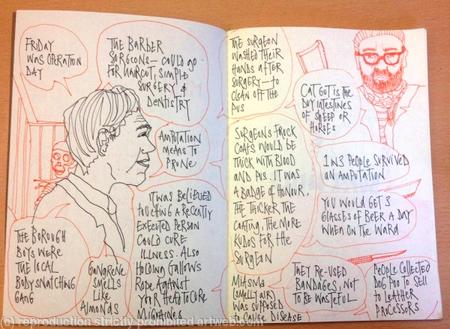 FRIDAY
WAS OPERATION
DAY
THE BARBER
SURGEONS – COULD GO
FOR HAIRCUT, SIMPLE
SURGERY &
DENTISTRY
AMPUTATION
MEANS TO
PRUNE
IT WAS BELIEVED
TOUCHING A RECENTLY
EXECUTED PERSON
COULD CURE
ILLNESS. ALSO
HOLDING GALLOWS
ROPE AGAINST
YOUR HEAD TO CURE
MIGRAINES
THE BOROUGH
BOYS WERE
THE LOCAL
BODYSNATCHING
GANG
GANGRENE
SMELLS
LIKE
ALMONDS
THE SURGEON
WASHED THEIR
HANDS AFTER
SURGERY – TO
CLEAN OFF THE
PUS
CAT GUT IS THE
DRY INTESTINES
OF SHEEP OR
HORSES
SURGEONS FROCK
COATS WOULD BE
THICK WITH BLOOD
AND PUS. IT WAS
A BADGE OF HONOUR.
THE THICKER THE
COATING, THE MORE
KUDOS FOR THE
SURGEON
1 IN 3 PEOPLE SURVIVED
AN AMPUTATION
YOU WOULD GET 3
GLASSES OF BEER A DAY
WHEN ON THE WARD
MIASMA
(SMELLY AIR)
WAS SUPPOSED
TO CAUSE DISEASE
THEY RE-USED
BANDAGES, NOT
TO BE WASTEFUL
PEOPLE COLLECTED
DOG POO TO SELL
TO LEATHER
PROCESSORS
(c) reproduction strictly prohibited artweb.com